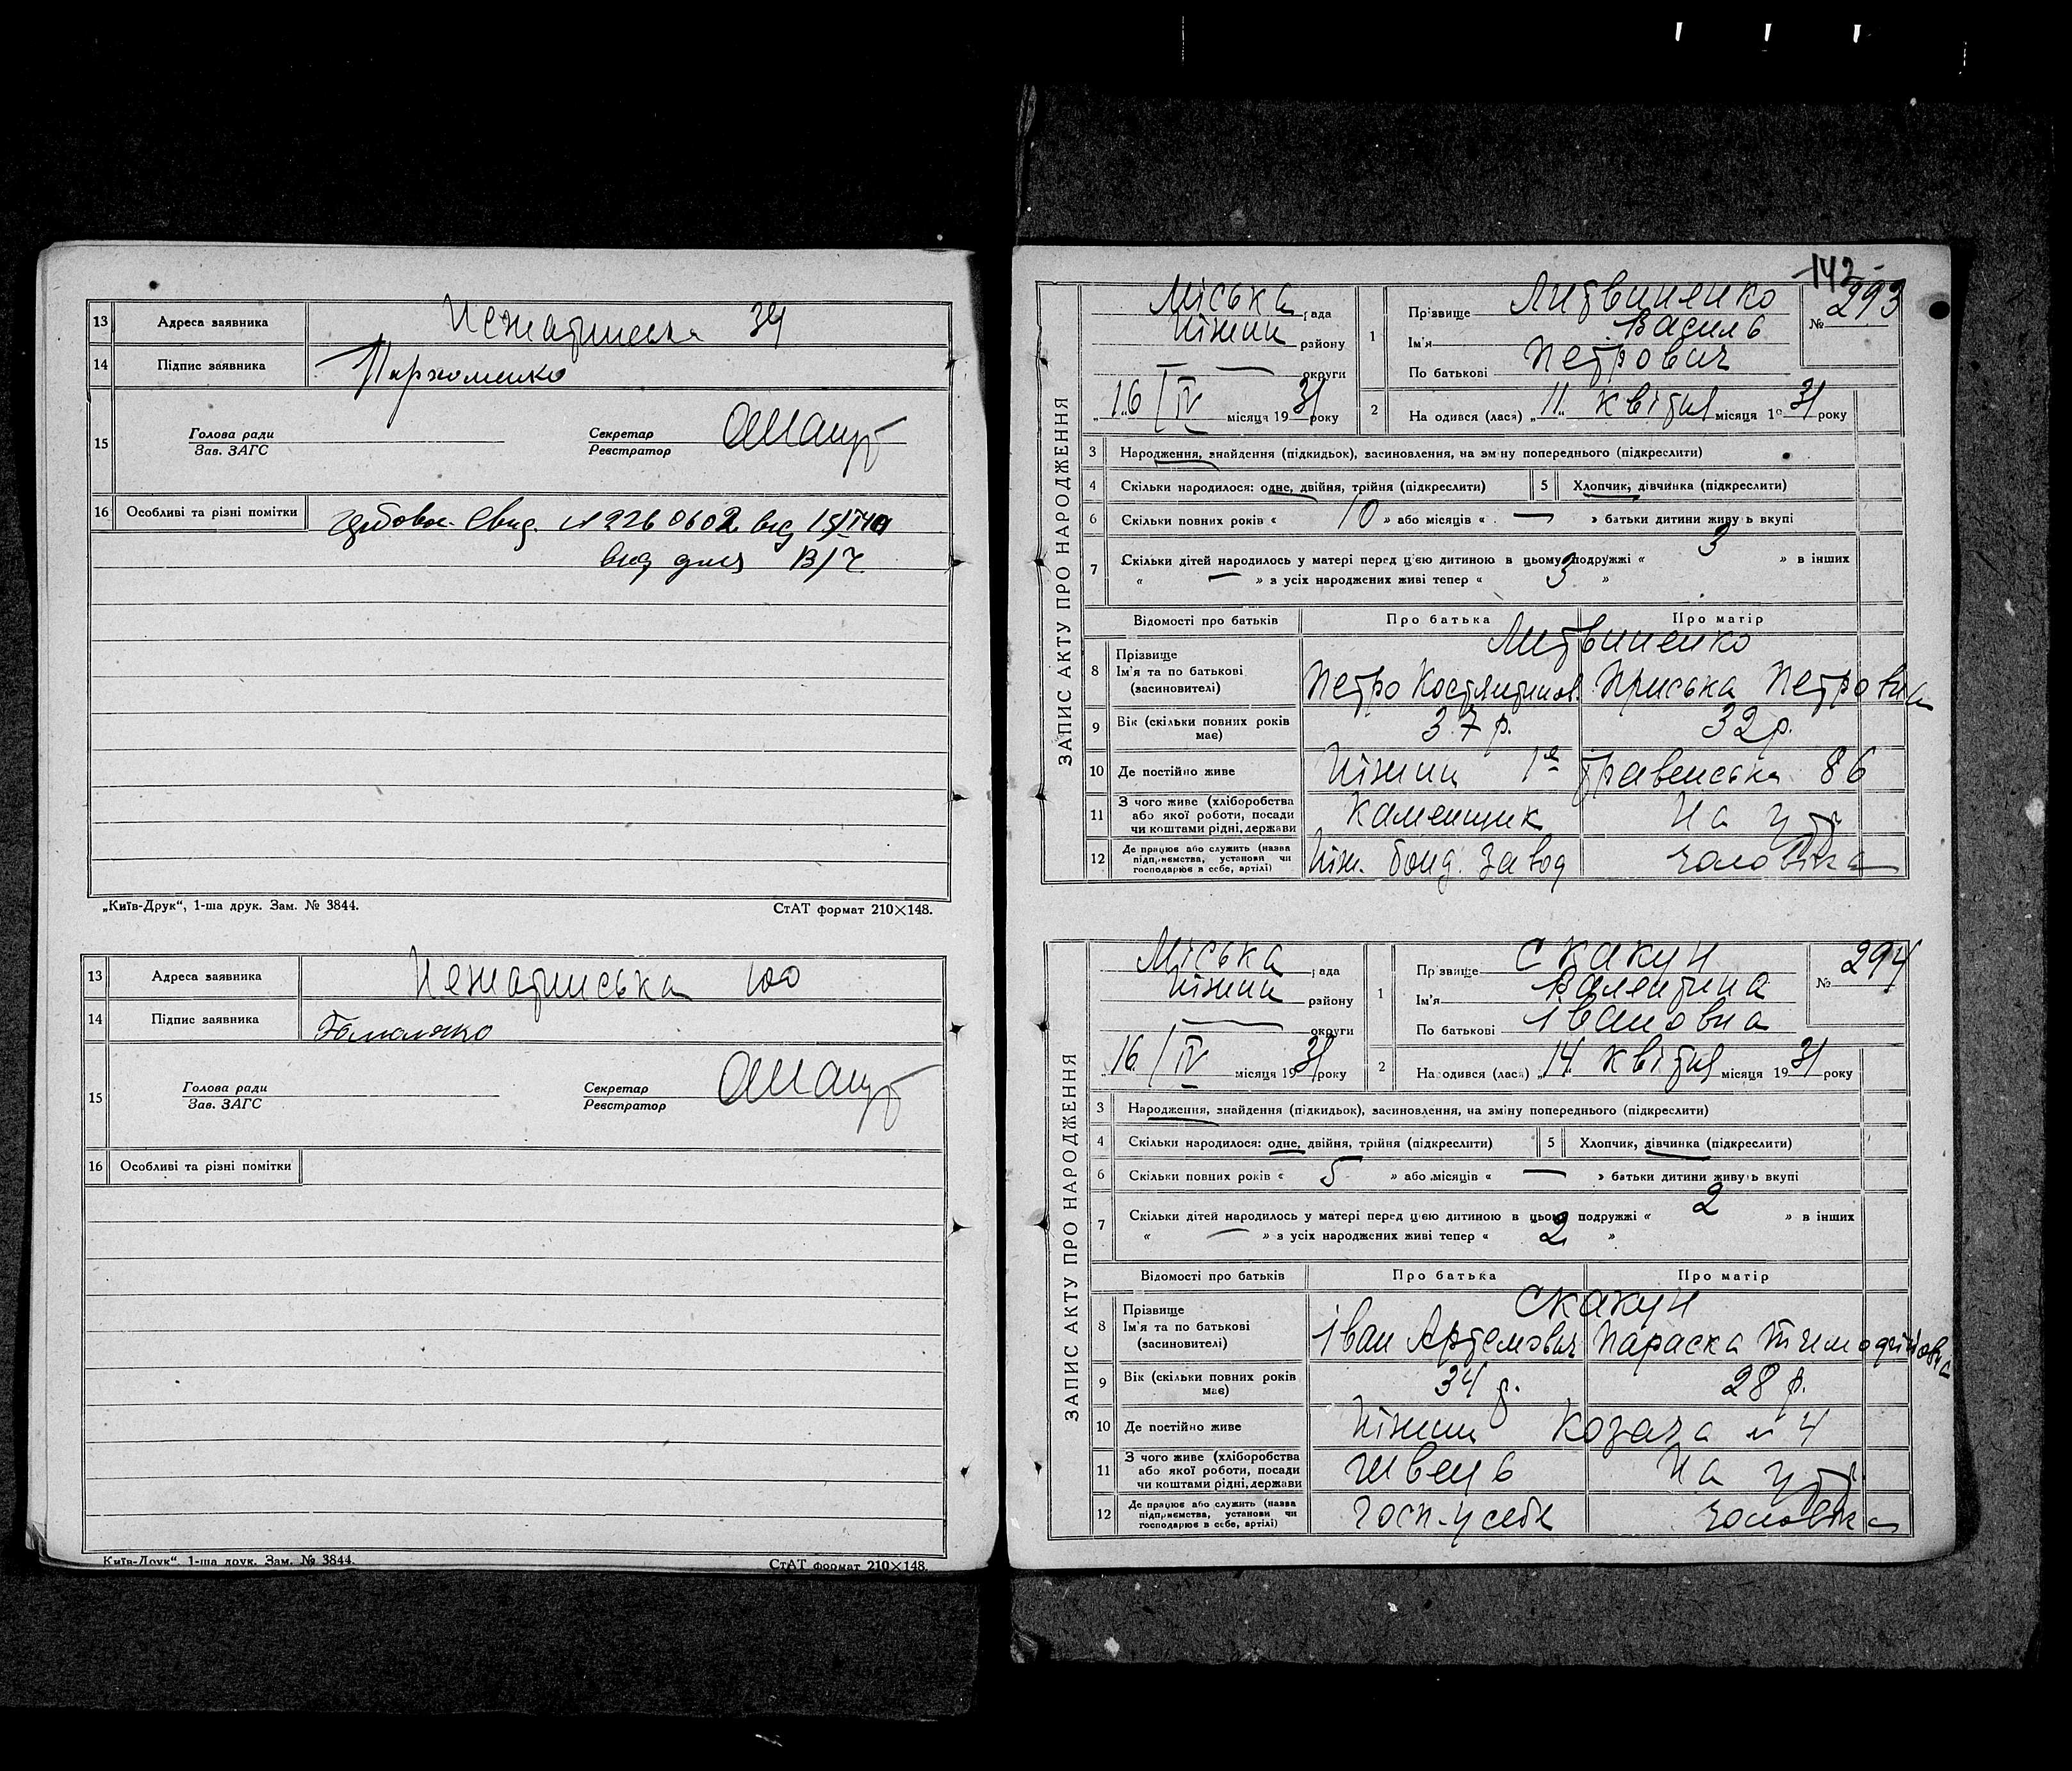 13 Адреса заявника Нежатинська 34
14 Підпис заявника Пархоменко
15 Голова ради
Зав. ЗАГС
Секретар
Реєстратор
16 Особливі та різні помітки
від для В/Ч
„Київ-Друк“, 1-ша друк. Зам. № 3844. СтАТ формат 210×148.
13 Адреса заявника Нежатинська 100
14 Підпис заявника
15 Голова ради
Зав. ЗАГС
Секретар
Реєстратор
16 Особливі та різні помітки
Київ-Друк“, 1-ша друк. Зам. № 3844. СтАТ формат 210×148.
142
ЗАПИС АКТУ ПРО НАРОДЖЕННЯ
Міська рада
Ніжин району
— округи
„16 / IV місяця 1931 року
1 Прізвище Литвиненко
Ім'я Василь
По батькові Петрович
№ 293
2 Народився (лася) „11“ квітня місяця 1931 року
3 Народження, знайдення (підкидьок), засиновлення, на зміну попереднього (підкреслити)
4 Скільки народилося: одне, двійня, трійня (підкреслити) 5 Хлопчик, дівчинка (підкреслити)
6 Скільки повних років « 10 » або місяців « — » батьки дитини живуть вкупі
7 Скільки дітей народилось у матері перед цією дитиною в цьому подружжі « 3 » в інших
« — » з усіх народжених живі тепер « 3 »
Відомості про батьків Про батька Про матір
8 Прізвище Литвиненко
Ім'я та по батькові (засиновителі) Петро Костянтинов.Приська Петровна
9 Вік (скільки повних років має) 37 р. 32 р.
10 Де постійно живе Ніжин 1е травенська 86
11 З чого живе (хліборобства або якої роботи, посади чи коштами рідні, держави Каменщик На утр.
12 Де працює або служить (назва підприємства, установи чи господарює в себе, артілі) Ніж. бонд. завод чоловіка
ЗАПИС АКТУ ПРО НАРОДЖЕННЯ
Міська рада
Ніжин району
— округи
16 / IV місяця 1931 року
1 Прізвище Скакун
Ім'я Валентина
По батькові Івановна
№ 294
2 Народився (лася) „14“ квітня місяця 1931 року
3 Народження, знайдення (підкидьок), засиновлення, на зміну попереднього (підкреслити)
4 Скільки народилося: одне, двійня, трійня (підкреслити) 5 Хлопчик, дівчинка (підкреслити)
6 Скільки повних років « 5 » або місяців « — » батьки дитини живуть вкупі
7 Скільки дітей народилось у матері перед цією дитиною в цьому подружжі « 2 » в інших
« — » з усіх народжених живі тепер « 2 »
Відомості про батьків Про батька Про матір
8 Прізвище Скакун
Ім'я та по батькові (засиновителі) Іван Артемович Параска Тимофіївна
9 Вік (скільки повних років має) 34 р. 28 р.
10 Де постійно живе Ніжин Козача № 4
11 З чого живе (хліборобства або якої роботи, посади чи коштами рідні, держави Швець На утр.
12 Де працює або служить (назва підприємства, установи чи господарює в себе, артілі) Госп. у себе чоловіка